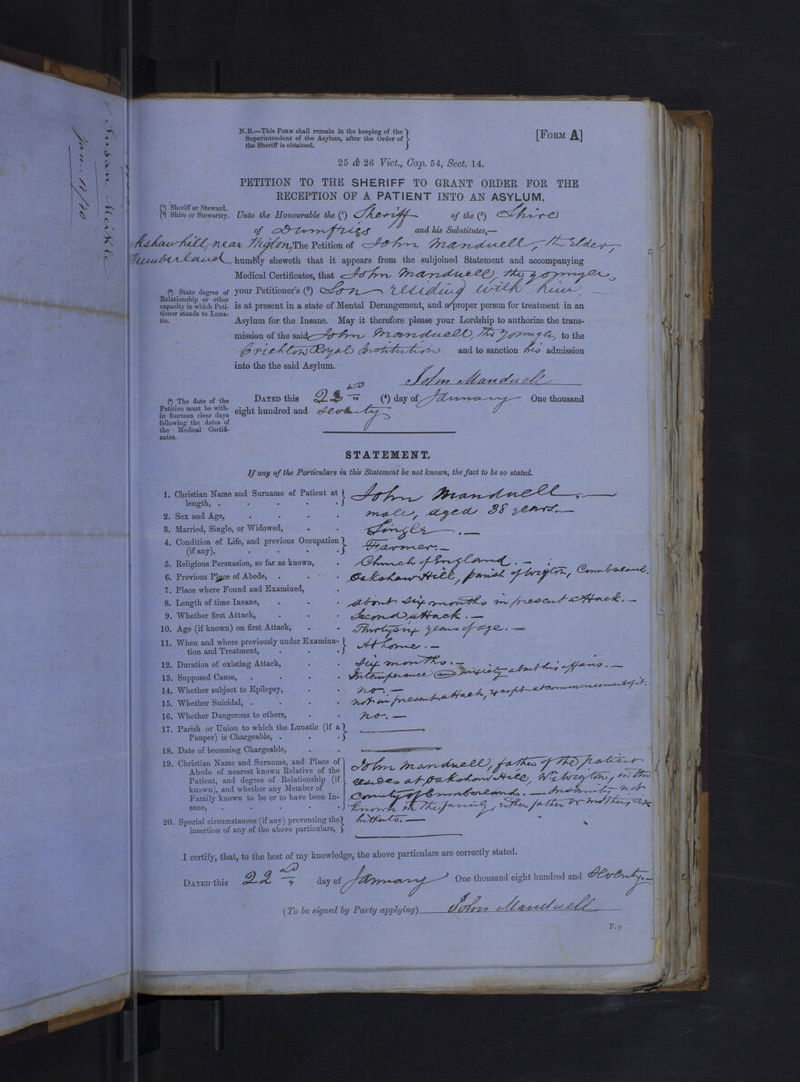 Susan Meikle
Jan. 11/70
N.B.—This Form shall remain in the keeping of the
Superintendent of the Asylum, after the Order of
the Sheriff is obtained.
[Form A]
25 & 26 Vict., Cap. 54, Sect. 14.
PETITION TO THE SHERIFF TO GRANT ORDER FOR THE
RECEPTION OF A PATIENT INTO AN ASYLUM.
(1) Sheriff or Steward.
(2) Shire or Stewartry.
Unto the Honourable the (1) Sheriff of the (2) Shire
of Dumfries and his Substitutes,—
near Wigton, The Petition of John Manduell, the Elder,
Cumberland, humbly sheweth that it appears from the subjoined Statement and accompanying
Medical Certificates, that John Manduell, the younger,
(3) State degree of
Relationship or other
capacity in which Peti-
tioner stands to Luna-
tic.
your Petitioner's (3) Son — residing with him —
is at present in a state of Mental Derangement, and a proper person for treatment in an
Asylum for the Insane. May it therefore please your Lordship to authorize the trans-
mission of the said John Manduell, the younger, to the
Crichton Royal Institution and to sanction his admission
into the the said Asylum.
John Manduell
(4) The date of the
Petition must be with-
in fourteen clear days
following the dates of
the Medical Certifi-
cates.
Dated this 22nd (4) day of January One thousand
eight hundred and seventy
STATEMENT.
If any of the Particulars in this Statement be not known, the fact to be so stated.
1. Christian Name and Surname of Patient at
length, . John Manduell. —
2. Sex and Age, male, aged 38 years. —
3. Married, Single, or Widowed, Single —. —
4. Condition of Life, and previous Occupation
(if any), Farmer. —
5. Religious Persuasion, so far as known, Church of England. —
6. Previous Place of Abode, Oakshaw Hill, parish of Wigton, Cumberland.
7. Place where Found and Examined,
8. Length of time Insane, about six months in present attack. —
9. Whether first Attack, Second attack. —
10. Age (if known) on first Attack, years of age. —
11. When and where previously under Examina-
tion and Treatment, At home. —
12. Duration of existing Attack, Six months. —
13. Supposed Cause, Intemperance and anxiety about his affairs. —
14. Whether subject to Epilepsy, no. —
15. Whether Suicidal, not in present attack, except at commencement of it.
16. Whether Dangerous to others, no. —
17. Parish or Union to which the Lunatic (if a
Pauper) is Chargeable, —
18. Date of becoming Chargeable, —
19. Christian Name and Surname, and Place of
Abode of nearest known Relative of the
Patient, and degree of Relationship (if
known), and whether any Member of
Family known to be or to have been In-
sane,
John Manduell, father of the patient
resides at Oakshaw Hill, Wigton, in the
County of Cumberland. — Insanity not
known in the family, either father or mother's side
hitherto. —
20. Special circumstances (if any) preventing the
insertion of any of the above particulars,
I certify, that, to the best of my knowledge, the above particulars are correctly stated.
Dated this 22nd day of January One thousand eight hundred and Seventy. —
(To be signed by Party applying) John Manduell